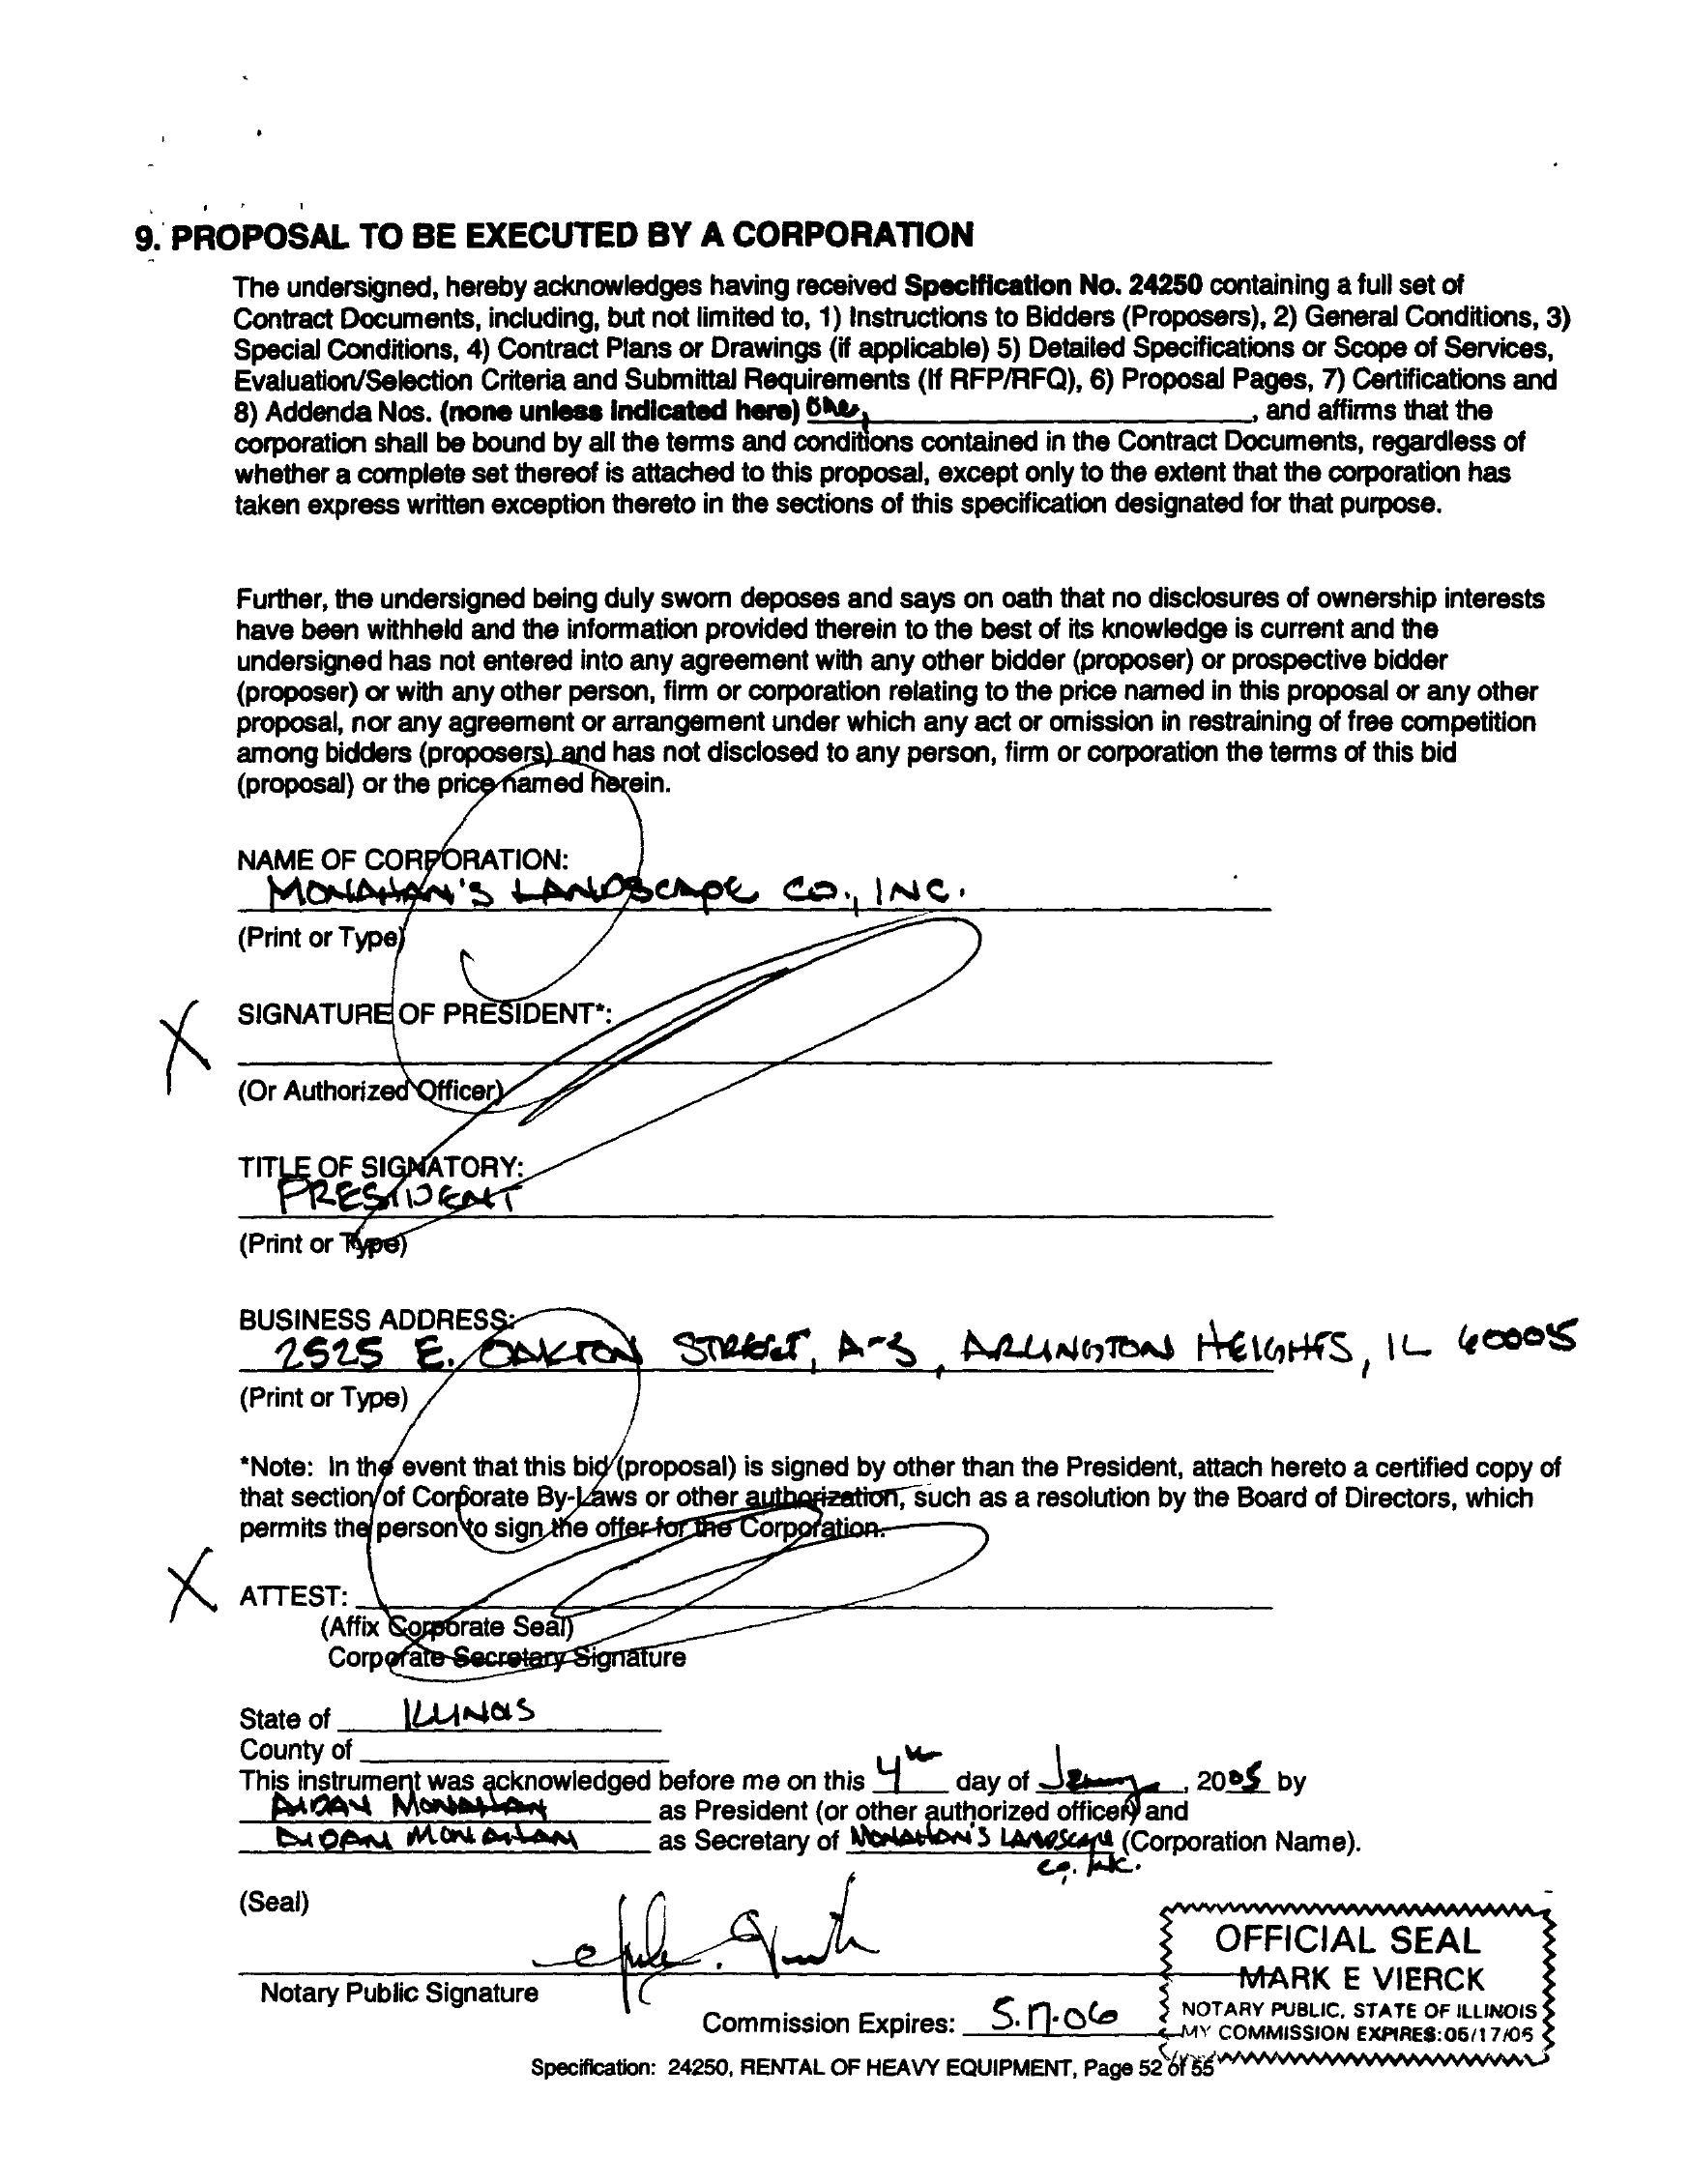 9. PROPOSAL TO BE EXECUTED BY A CORPORATION
The undersigned, hereby acknowledges having received Specification No. 24250 containing a full set of
Contract Documents, including, but not limited to, 1) Instructions to Bidders (Proposers), 2) General Conditions, 3)
Special Conditions, 4) Contract Plans or Drawings (if applicable) 5) Detailed Specifications or Scope of Services,
Evaluation/Selection Criteria and Submittal Requirements (If RFP/RFQ), 6) Proposal Pages, 7) Certifications and
8) Addenda Nos. (none unless indicated here) One, and affirms that the
corporation shall be bound by all the terms and conditions contained in the Contract Documents, regardless of
whether a complete set thereof is attached to this proposal, except only to the extent that the corporation has
taken express written exception thereto in the sections of this specification designated for that purpose.
Further, the undersigned being duly sworn deposes and says on oath that no disclosures of ownership interests
have been withheld and the information provided therein to the best of its knowledge is current and the
undersigned has not entered into any agreement with any other bidder (proposer) or prospective bidder
(proposer) or with any other person, firm or corporation relating to the price named in this proposal or any other
proposal, nor any agreement or arrangement under which any act or omission in restraining of free competition
among bidders (proposers) and has not disclosed to any person, firm or corporation the terms of this bid
(proposal) or the price named herein.
NAME OF CORPORATION:
MONAHAN'S LANDSCAPE CO., INC.
(Print or Type)
X SIGNATURE OF PRESIDENT*:
(Or Authorized Officer)
TITLE OF SIGNATORY:
PRESIDENT
(Print or Type)
BUSINESS ADDRESS:
2525 E. OAKTON STREET, A-3, ARLINGTON HEIGHTS, IL 60005
(Print or Type)
*Note: In the event that this bid (proposal) is signed by other than the President, attach hereto a certified copy of
that section of Corporate By-Laws or other authorization, such as a resolution by the Board of Directors, which
permits the person to sign the offer for the Corporation.
X ATTEST:
(Affix Corporate Seal)
Corporate Secretary Signature
State of ILLINOIS
County of
This instrument was acknowledged before me on this 4th day of January, 2005 by
AIDAN MONAHAN as President (or other authorized officer) and
AIDAN MONAHAN as Secretary of MONAHAN'S LANDSCAPE (Corporation Name).
CO, INC.
(Seal)
Notary Public Signature
Commission Expires: 5.17.06
OFFICIAL SEAL
MARK E VIERCK
NOTARY PUBLIC, STATE OF ILLINOIS
MY COMMISSION EXPIRES:05/17/06
Specification: 24250, RENTAL OF HEAVY EQUIPMENT, Page 52 of 55